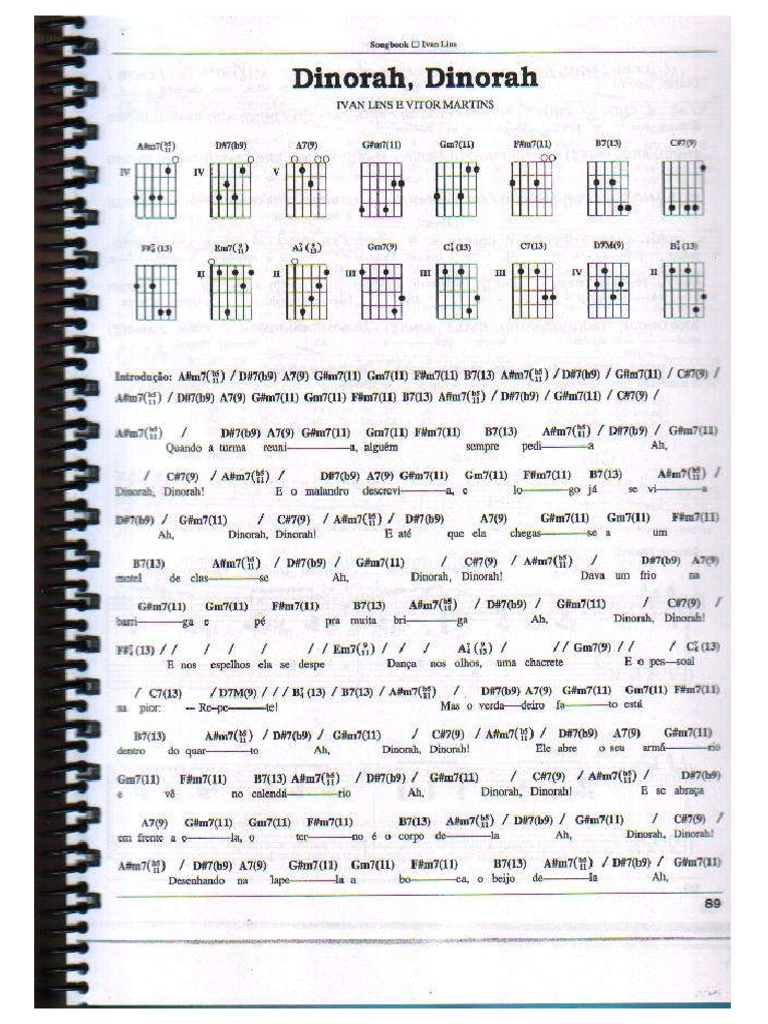 Songbook □ Ivan Lins
Dinorah, Dinorah
IVAN LINS E VITOR MARTINS
A#m7(b5 11) D#7(b9) A7(9) G#m7(11) Gm7(11) F#m7(11) B7(13) C#7(9)
IV IV V
F#7 4(13) Em7(9 11) A7 4(9 13) Gm7(9) C7 4(13) C7(13) D7M(9) B7 4(13)
II II III III III IV II
Introdução: A#m7(b5 11) / D#7(b9) A7(9) G#m7(11) Gm7(11) F#m7(11) B7(13) A#m7(b5 11) / D#7(b9) / G#m7(11) / C#7(9) /
A#m7(b5 11) / D#7(b9) A7(9) G#m7(11) Gm7(11) F#m7(11) B7(13) A#m7(b5 11) / D#7(b9) / G#m7(11) / C#7(9) /
A#m7(b5 11) / D#7(b9) A7(9) G#m7(11) Gm7(11) F#m7(11) B7(13) A#m7(b5 11) / D#7(b9) / G#m7(11)
Quando a turma reuni———a, alguém sempre pedi———a Ah,
/ C#7(9) / A#m7(b5 11) / D#7(b9) A7(9) G#m7(11) Gm7(11) F#m7(11) B7(13) A#m7(b5 11) /
Dinorah, Dinorah! E o malandro descrevi———a, e lo———go já se vi———a
D#7(b9) / G#m7(11) / C#7(9) / A#m7(b5 11) / D#7(b9) A7(9) G#m7(11) Gm7(11) F#m7(11)
Ah, Dinorah, Dinorah! E até que ela chegas———se a um
B7(13) A#m7(b5 11) / D#7(b9) / G#m7(11) / C#7(9) / A#m7(b5 11) / D#7(b9) A7(9)
motel de clas———se Ah, Dinorah, Dinorah! Dava um frio na
G#m7(11) Gm7(11) F#m7(11) B7(13) A#m7(b5 11) / D#7(b9) / G#m7(11) / C#7(9) /
barri———ga e pé pra muita bri———ga Ah, Dinorah, Dinorah!
F#7 4(13) / / / / / / / / Em7(9 11) / / / A7 4(9 13) / / / Gm7(9) / / / C7 4(13)
E nos espelhos ela se despe Dança nos olhos, uma chacrete E o pes—soal
/ C7(13) / D7M(9) / / / B7 4(13) / B7(13) / A#m7(b5 11) / D#7(b9) A7(9) G#m7(11) Gm7(11) F#m7(11)
na pior: – Re-pe———te! Mas o verda—deiro fa———to está
B7(13) A#m7(b5 11) / D#7(b9) / G#m7(11) / C#7(9) / A#m7(b5 11) / D#7(b9) A7(9) G#m7(11)
dentro do quar———to Ah, Dinorah, Dinorah! Ele abre o seu armá———rio
Gm7(11) F#m7(11) B7(13) A#m7(b5 11) / D#7(b9) / G#m7(11) / C#7(9) / A#m7(b5 11) / D#7(b9)
e vê no calendá———rio Ah, Dinorah, Dinorah! E se abraça
A7(9) G#m7(11) Gm7(11) F#m7(11) B7(13) A#m7(b5 11) / D#7(b9) / G#m7(11) / C#7(9) /
em frente a e———la, o ter———no é o corpo de———la Ah, Dinorah, Dinorah!
A#m7(b5 11) / D#7(b9) A7(9) G#m7(11) Gm7(11) F#m7(11) B7(13) A#m7(b5 11) / D#7(b9) / G#m7(11)
Desenhando na lape———la a bo———ca, o beijo de———la Ah,
89